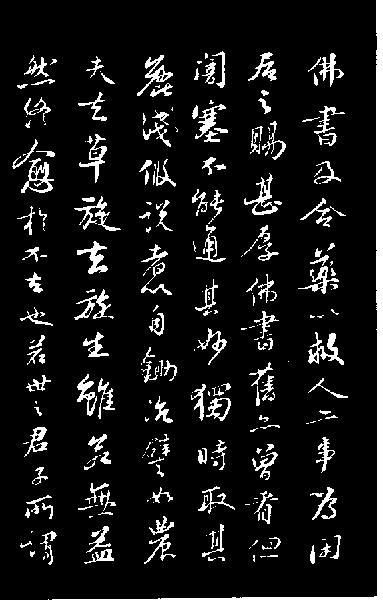 佛書及合藥以救人二事為閑
居之賜甚厚佛書舊亦曾看但
闇塞不能通其妙獨時取其
麄淺假說者以自鋤治譬如農
夫去草旋去旋生雖若無益
然終愈於不去也若世之君子所謂